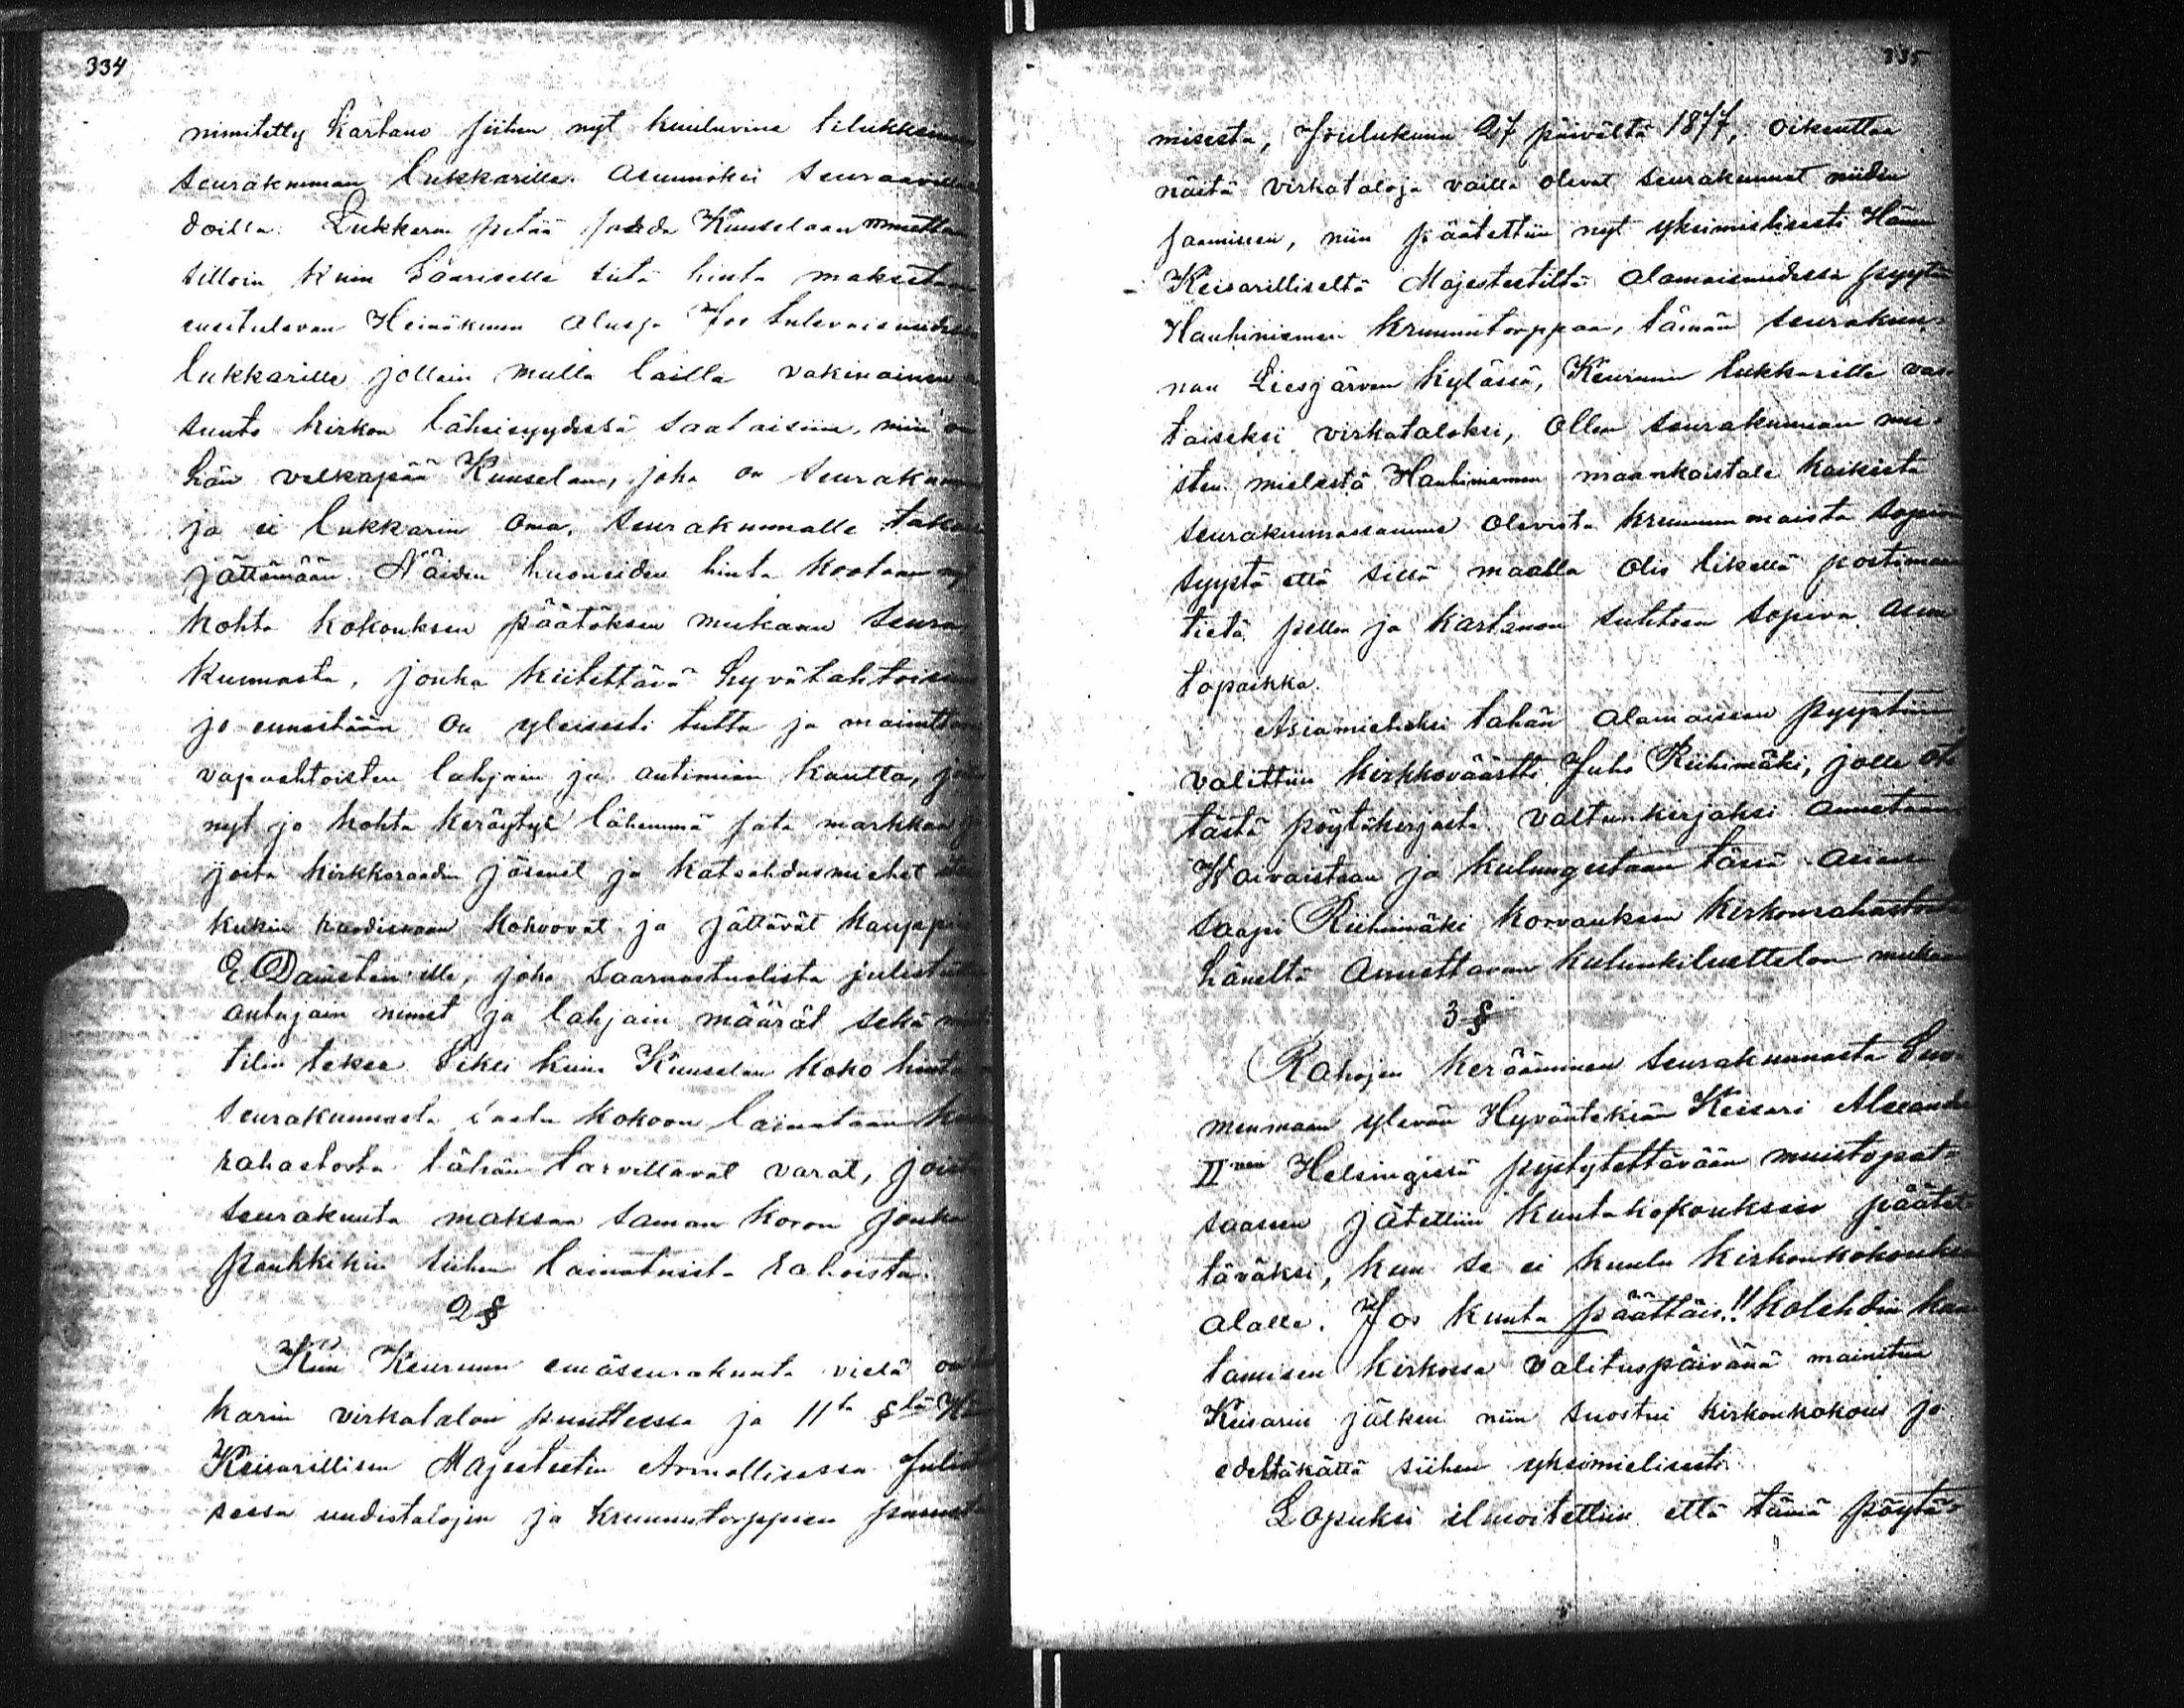 334
nimitetty kartano siihen nyt kuuluvine tilukkeineen
seurakunnan lukkarille asunnoksi seuraavilla
doilla: Lukkarin pitää saada Kuuselaan muuttaa
silloin kuin Saariselle siitä hinta maksetaan
ensitulevan Heinäkuun alussa Jos tulevaisuudessa
lukkarille jollain muulla lailla vakinainen a
sunto kirkon läheisyydessä saataisiin, niin on
hän velkapää Kuuselan, joka on seurakunnan
ja ei lukkarin oma, seurakunnalle takaisin
jättämään. Näiden huoneiden hinta kootaan nyt
kohta kokouksen päätöksen mukaan seura
kunnasta, jonka kiitettävä hyvätahtoisuus
jo ennestään on yleisesti tuttu ja mainittava
vapaehtoisten lahjain ja antimien kautta, joita
nyt jo kohta keräytyi lähemmä sata markkaa
joita kirkkoraadin jäsenet ja katsahdusmiehet
kukin kuudissaan kokoovat ja jättävät kauppias
E. Dausten'ille, joka saarnastuolista julistuttaa
antajain nimet ja lahjain määrät sekä
tilin tekee. Siksi kuin Kuuselan koko hinta
seurakunnasta saadaan kokoon lainataan
rahastosta tähän tarvittavat varat, joista
seurakunta maksaa saman koron jonka
pankkikin siihen lainatuista rahoista.
2 §
Kun Keuruun emäseurakunta vielä on
karin virkatalon puutteessa ja 11ta §tä
Keisarillisen Majesteetin Armollisessa Julistuk
sessa uudistalojen ja kruununtorppien
335
misesta, Joulukuun 27 päivältä 1877, oikeuttaa
näitä virkataloja vailla olevat seurakunnat niiden
saamiseen, niin päätettiin nyt yksimielisesti Hänen
Keisarilliselta Majesteetiltä alamaisuudessa pyytää
Hauhiniemen kruununtorppaa, tämän seurakun-
nan Liesjärven kylässä, Keuruun lukkarille vas-
taiseksi virkataloksi, Ollen seurakunnan mie-
sten mielestä Hauhiniemen maankaistale kaikista
seurakunnassamme olevista kruununmaista sopivin
syystä että sillä maalla olis likellä postimaan
tietä pellon ja kartanon suhteen sopiva asun
topaikka.
Asiamieheksi tähän alamaiseen pyyntöön
valittiin kirkkoväärtti Juho Riihimäki, jolle ote
tästä pöytäkirjasta valtuuskirjaksi annetaan
Waivaistaan ja kulungistaan tässä asiassa
saapi Riihimäki korvauksen kirkonrahastosta
häneltä annettavan kulunkiluettelon mukaan
3 §
Rahojen kerääminen seurakunnasta Suo-
menmaan ylevän Hyväntekiän Keisari Alexander
II:sen Helsingissä pystytettävään muistopat-
saasen jätettiin kuntakokouksessa päätet-
täväksi, kun se ei kuulu kirkonkokouksen
alalle. Jos kunta päättäis!! kolehdin kan
tamisen kirkossa valituspäivänä mainitun
Keisarin jälkeen niin suostui kirkonkokous jo
edeltäkättä siihen yksimielisesti.
Lopuksi ilmoitettiin että tämä pöytä-